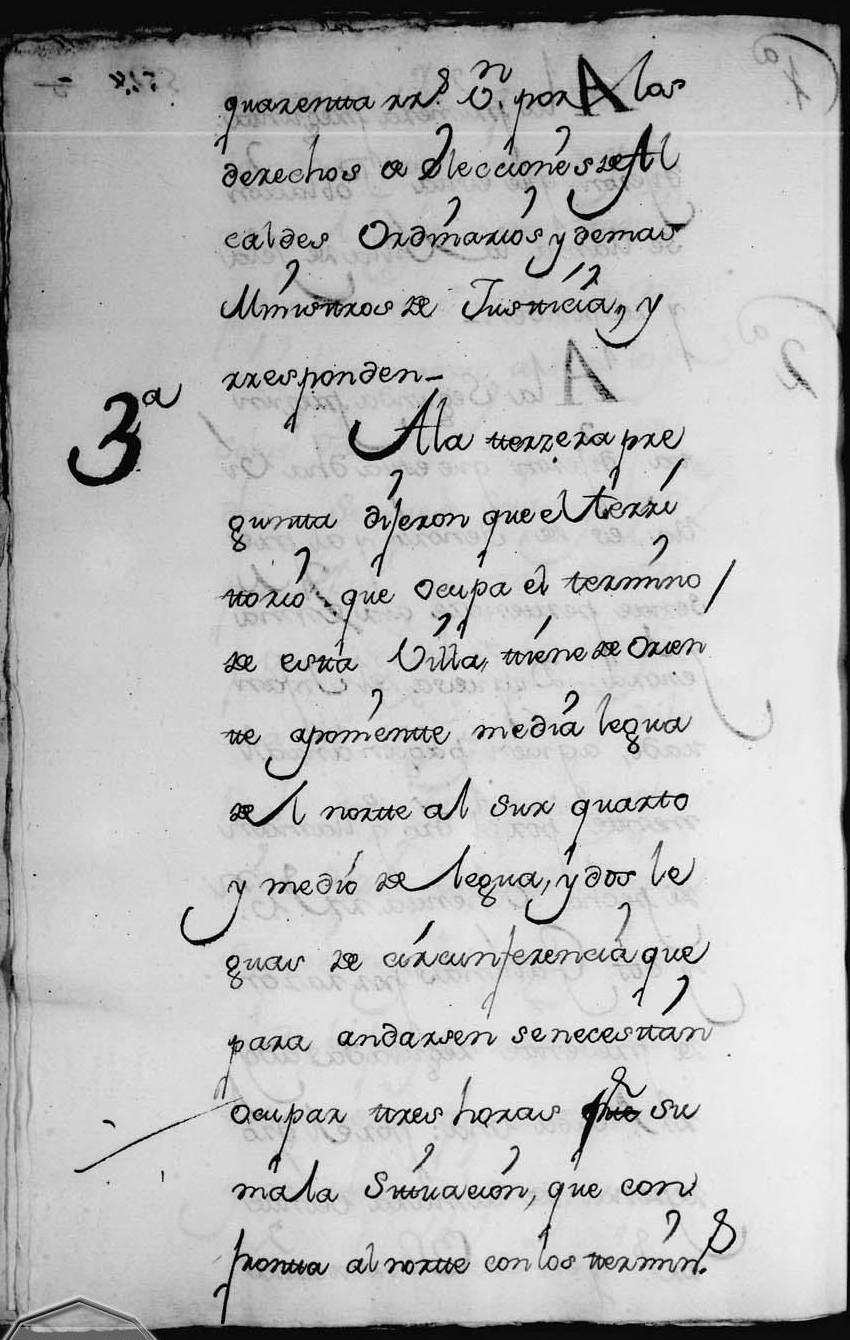 quarentta rr.s V.n por A los
derechos de elecciones de Al
caldes Ordinarios y demas
Ministtros de Justticia, y
rresponden_
3a
A la tterzera pre
guntta dijeron que el terri
ttorio que ocupa el termino
de estta Villa, ttiene de Orien
tte aponientte media legua
del nortte al sur quarto
y medio de legua, y dos le
guas de circunferencia que
para andarsen se necesittan
ocupar ttres horas su
mala Sittuacion, que con
frontta al nortte con los ttermin.s